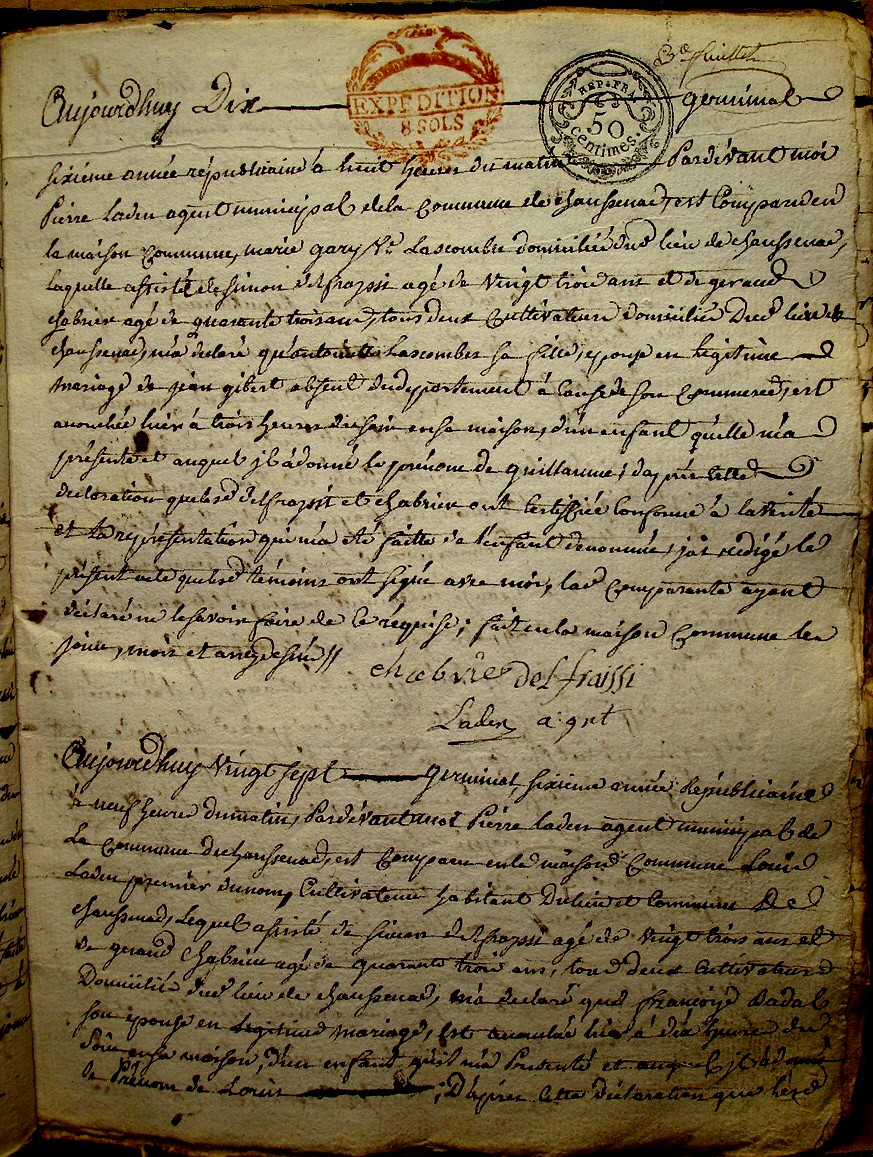 3e feuillet
EXPEDITION
8 SOLS
REP. FRA.
50
centimes.
Aujourdhuy Dix germinal
sixieme année républicaine à huit heures du matin Pardévant moi
Pierre Laden agent municipal de la Commune de chaussenac, est Comparu en
la maison Commune, marie gary Ve Lascombe domiciliée dud lieu de chaussenac,
laquelle assistée de simon delfraissi agé de vingt trois ans et de geraud
chabrier agé de quarante trois ans, tous deux Cultivateurs domiciliés Dud lieu de
chaussenac, m'a déclaré qu'antoinette Lascombes sa fille, epouse en legitime
mariage de jean gibert absent du département à cause de son Commerce, est
accouchée hier à trois heures du soir en sa maison, d'un enfant qu'elle m'a
présenté et auquel jl a donné le prénom de guillaume; d'aprés cette
declaration que lesd delfraissi et chabrier ont certiffiée conforme à la vérité
et la représentation qui m'a eté faitte de l'enfant denommé, j'ai rédigé le
présent acte que lesd témoins ont signé avec moi, lad Comparante ayant
déclaré ne le savoir faire de ce réquise; fait en la maison Commune les
jour, mois et an, desus //
chabrie delfraissi
Laden agnt
Aujourdhuy Vingt sept germinal, sixieme année Républicaine
à neuf heure du matin, Pardévant moi Pierre laden agent municipal de
La Commune de chaussenac, est Comparu en la maison Commune Louis
Laden premier du nom, Cultivateur habitant Du lieu et Commune De
chaussenac, Lequel assisté de simon delfraissi agé de vingt trois ans et
de geraud Chabrier agé de quarante trois ans, tous deux Cultivateurs
Domicilié dud lieu de chaussenac, m'a declaré que françoise Badal
son epouse en Legitime mariage, Est accouchée hier à dix heures du
Soir en sa maison, d'un enfant qu'il m'a Présenté et auquel jl a donné
le Prénom de Louis ; D'aprés cette déclaration que lesd